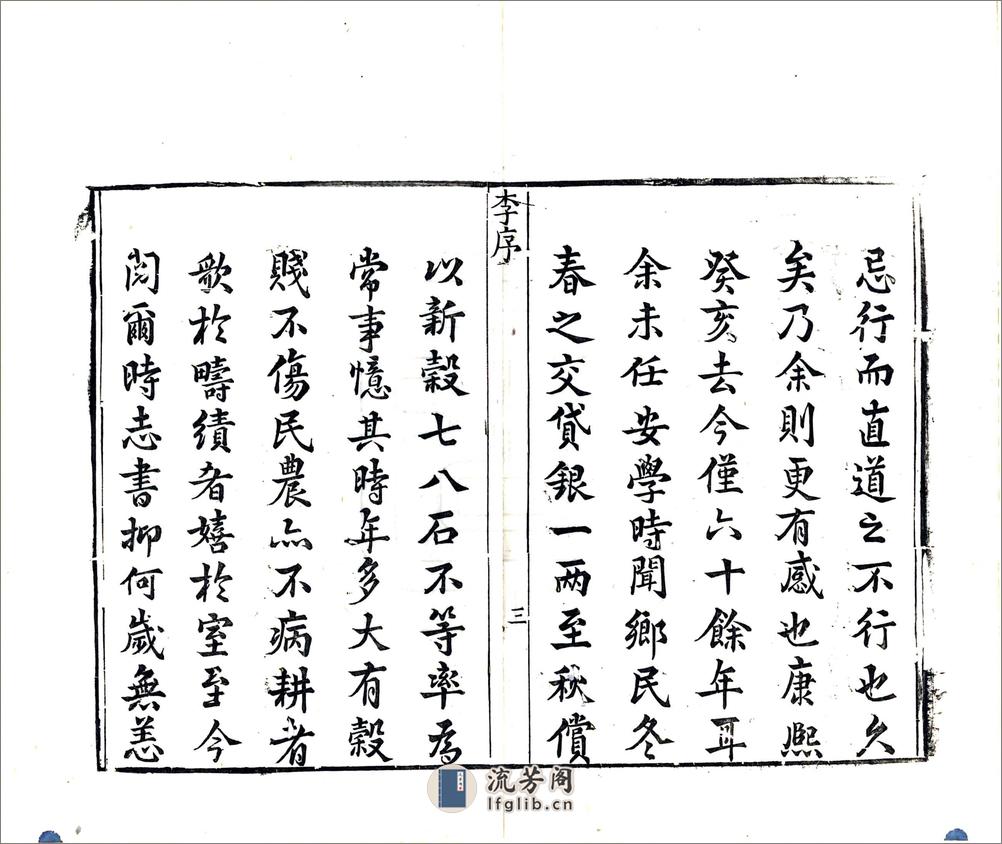 忌行而直道之不行也久
矣乃余則更有感也康熙
癸亥去今僅六十餘年耳
余未任安學時聞鄉民冬
春之交貸銀一兩至秋償
李序
三
以新穀七八石不等率為
常事憶其時年多大有穀
賤不傷民農亦不病耕者
歌於疇績者嬉於室至今
閱爾時志書抑何歲無恙
流芳阁
lfglib.cn